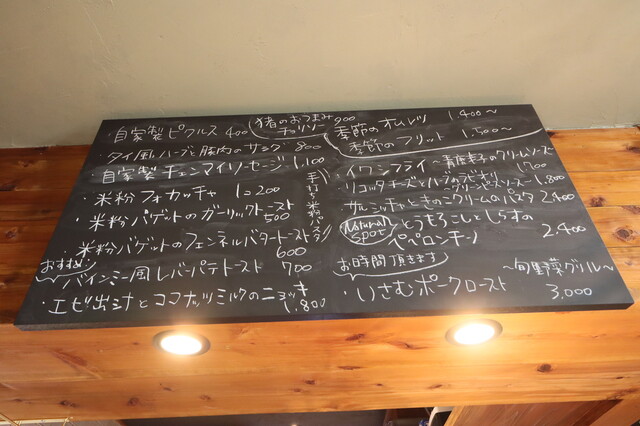 ・自家製ピクルス 400
猪のおつまみ
チョリソー 900
・タイ風ハーブと豚肉のサラダ 800
・自家製チェンマイソーセージ 1,100
・米粉フォカッチャ 1=200
・米粉バゲットのガーリックトースト
500
・米粉バゲットのフェンネルバタートースト
600
おすすめ!
・バインミー風レバーパテトースト 700
・エビ出汁とココナッツミルクのニョッキ
1,800
手打ち米粉パスタ
季節のオムレツ 1,400〜
季節のフリット 1,500〜
・イワシフライ
クリームソース
1700
・リコッタチーズとハーブのラビオリ
グリーンピースソース 1,800
・サルシッチャときのこクリームのパスタ 2,400
Natural spot
とうもろこしとしらすの
ペペロンチーノ
2,400
お時間頂きます
・いさむポークロースト
〜旬野菜グリル〜
3,000